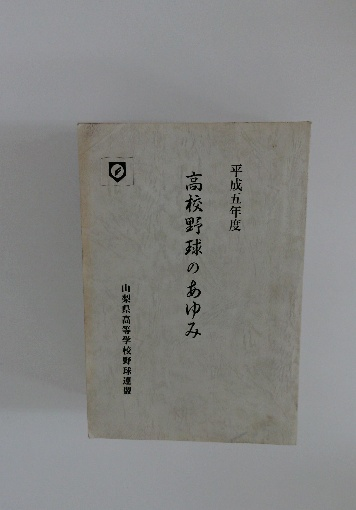 平成五年度
高校野球のあゆみ
山梨県高等学校野球連盟